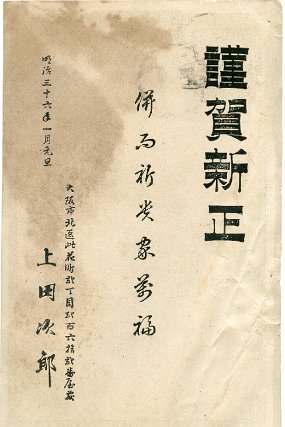 謹賀新正
併而祈貴家萬福
明治三十六年一月元旦
大阪市北區此花町弐丁目弐百六拾弐番屋敷
上田次郎